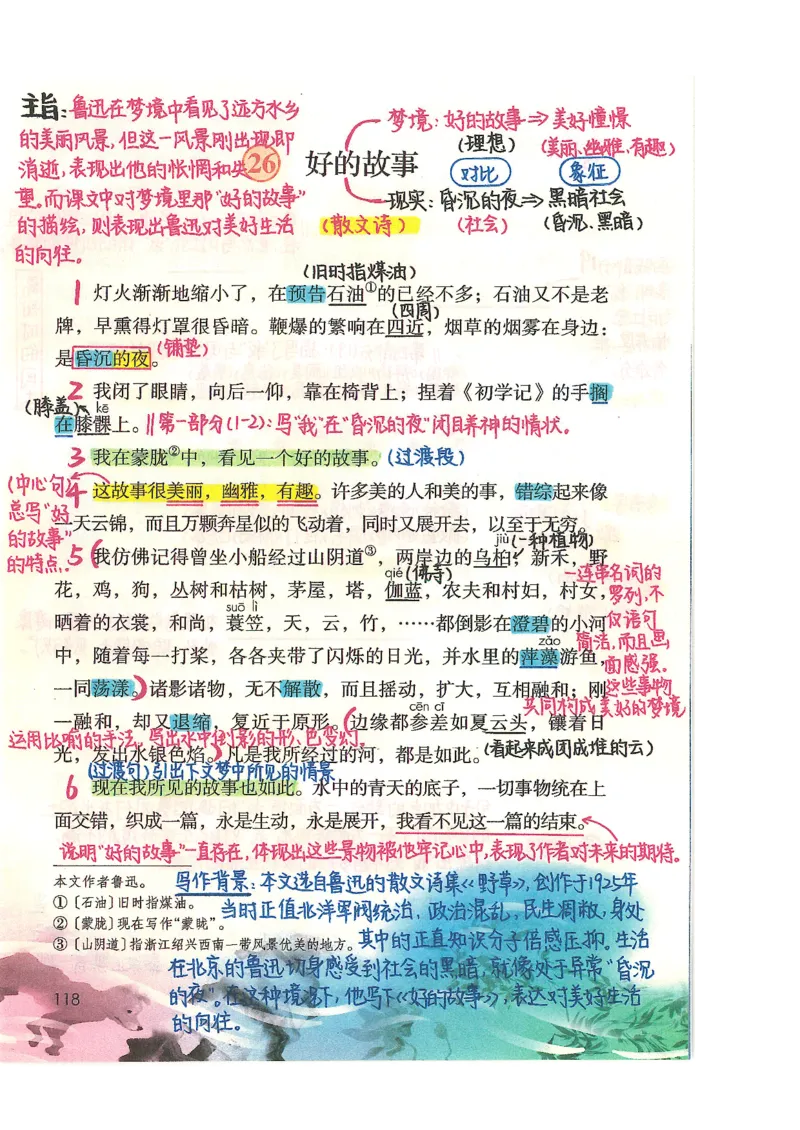 主旨：鲁迅在梦境中看见了远方水乡
的美丽风景，但这一风景刚出现即
消逝，表现出他的怅惘和失
望。而课文中对梦境里那“好的故事”
的描绘，则表现出鲁迅对美好生活
的向往。
26 好的故事
（散文诗）
梦境：好的故事⇒美好憧憬
（理想）（美丽、幽雅、有趣）
对比 象征
现实：昏沉的夜⇒黑暗社会
（社会）（昏沉、黑暗）
（旧时指煤油）
1 灯火渐渐地缩小了，在预告石油①的已经不多；石油又不是老
（四周）
牌，早熏得灯罩很昏暗。鞭爆的繁响在四近，烟草的烟雾在身边：
是昏沉的夜。（铺垫）
2 我闭了眼睛，向后一仰，靠在椅背上；捏着《初学记》的手搁
（膝盖） kē
在膝髁上。‖第一部分（1-2）：写“我”在“昏沉的夜”闭目养神的情状。
3 我在蒙胧②中，看见一个好的故事。（过渡段）
（中心句）
总写“好
的故事”
的特点。
4 这故事很美丽，幽雅，有趣。许多美的人和美的事，错综起来像
一天云锦，而且万颗奔星似的飞动着，同时又展开去，以至于无穷。
jiù（一种植物）
5 我仿佛记得曾坐小船经过山阴道③，两岸边的乌桕，新禾，野
qié（佛寺）
花，鸡，狗，丛树和枯树，茅屋，塔，伽蓝，农夫和村妇，村女，
suō lì
晒着的衣裳，和尚，蓑笠，天，云，竹，……都倒影在澄碧的小河
zǎo
中，随着每一打桨，各各夹带了闪烁的日光，并水里的萍藻游鱼，
一同荡漾。诸影诸物，无不解散，而且摇动，扩大，互相融和；刚
一连串名词的
罗列，不
仅语句
简洁，而且画
面感强。
这些事物
共同构成美好的梦境
cēn cī
一融和，却又退缩，复近于原形。边缘都参差如夏云头，镶着日
运用比喻的手法，写出水中倒影的形、色变幻。
光，发出水银色焰。凡是我所经过的河，都是如此。（看起来成团成堆的云）
（过渡句）引出下文梦中所见的情景
6 现在我所见的故事也如此。水中的青天的底子，一切事物统在上
面交错，织成一篇，永是生动，永是展开，我看不见这一篇的结束。
说明“好的故事”一直存在，体现出这些景物被他牢记心中，表现了作者对未来的期待。
本文作者鲁迅。
①〔石油〕旧时指煤油。
②〔蒙胧〕现在写作“蒙眬”。
③〔山阴道〕指浙江绍兴西南一带风景优美的地方。
写作背景：本文选自鲁迅的散文诗集《野草》，创作于1925年
当时正值北洋军阀统治，政治混乱，民生凋敝，身处
其中的正直知识分子倍感压抑。生活
在北京的鲁迅切身感受到社会的黑暗，就像处于异常“昏沉
的夜”。在这种境况下，他写下《好的故事》，表达对美好生活
的向往。
118